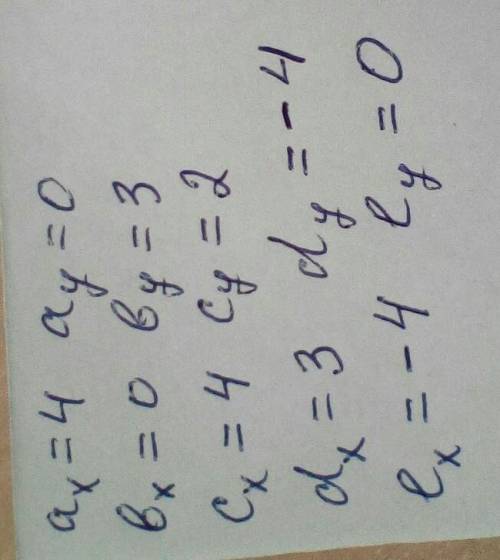 aₓ = 4 a_y = 0
вₓ = 0 в_y = 3
cₓ = 4 c_y = 2
dₓ = 3 d_y = -4
eₓ = -4 e_y = 0